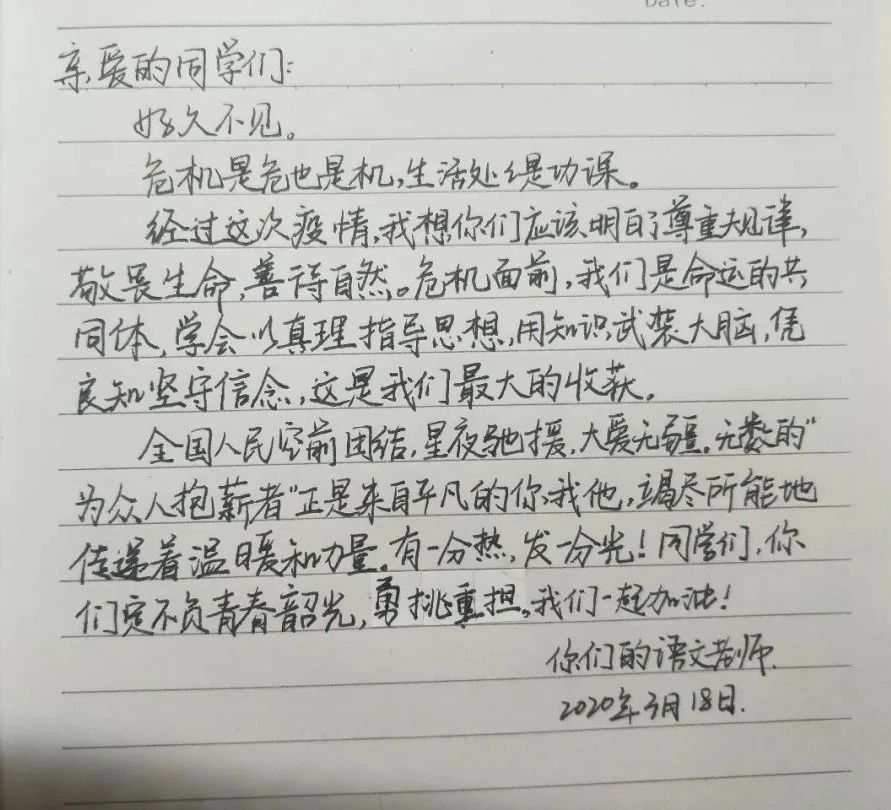 Date:
亲爱的同学们:
好久不见。
危机是危也是机,生活处处是功课。
经过这次疫情,我想你们应该明白了尊重规律,
敬畏生命,善待自然。危机面前,我们是命运的共
同体,学会以真理指导思想,用知识武装大脑,凭
良知坚守信念,这是我们最大的收获。
全国人民空前团结,星夜驰援,大爱无疆。无数的"
为众人抱薪者"正是来自平凡的你、我他,竭尽所能地
传递着温暖和力量。有一分热,发一分光!同学们,你
们定不负青春韶光,勇挑重担。我们一起加油!
你们的语文老师.
2020年3月18日.